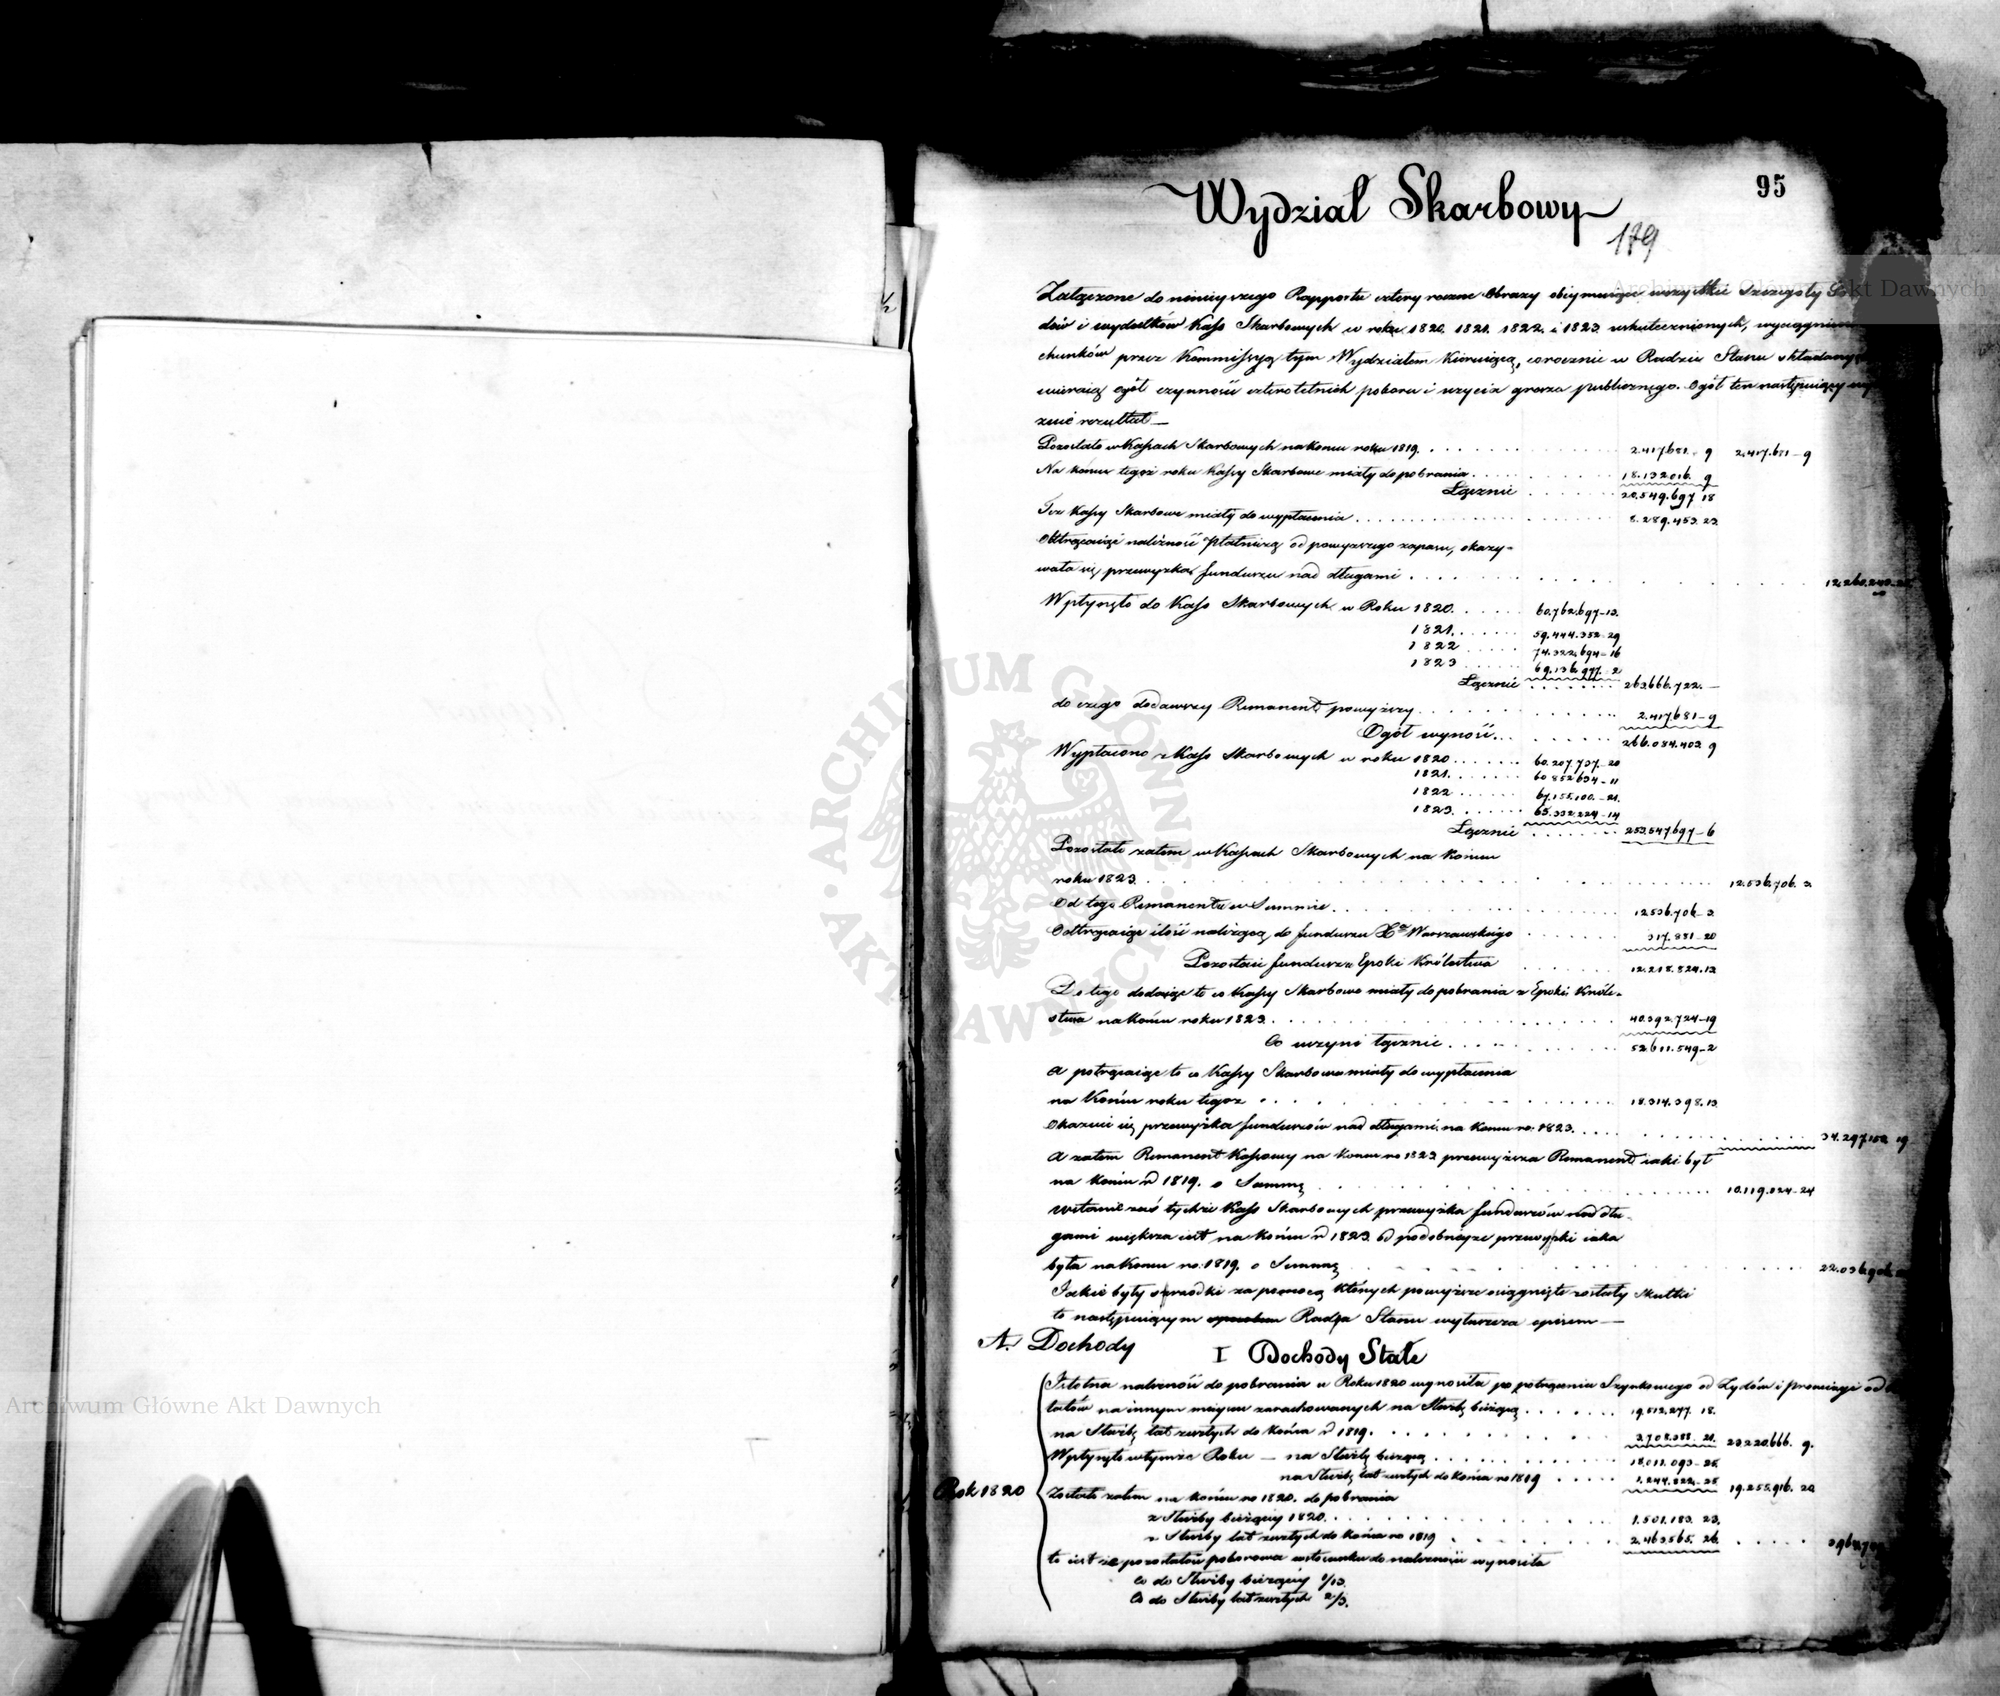 95
Wydział Skarbowy
179
Załączone do ninieyszego Rapportu cztery roczne Obrazy obeymuiące wszystkie szczegoły
dów i wydatków Kass Skarbowych w roku 1820. 1821. 1822. i 1823 uskutecznionych, wyciągnie
chunków przez Kommissyą tym Wydziałem Kieruiącą, corocznie w Radzie Stanu składany
wieraią ogół czynności czteroletnich poboru i użycia grosza publicznego. Ogół ten następuiący
zuie rezultat —
Pozostało w Kassach Skarbowych na końcu roku 1819. 2.417.681. 9 2.417.681 - 9
Na końcu tegoż roku Kassy Skarbowe miały do pobrania 18.132.016. 9
Łącznie 20.549.697 18
Też Kassy Skarbowe miały do wypłacenia 8.289.453. 23
Odtrącaiąc należność płatniczą od powyższego zapasu, okazy-
wała się przewyżka funduszu nad długami 12.260.243
Wpłynęło do Kass Skarbowych w Roku 1820. 60.762.697-13.
1821. 59.444.352-29
1822 74.322.694-16
1823 69.136.977. 2
Łącznie 263.666.722. —
do czego dodawszy Remanent powyższy 2.417.681 - 9
Ogół wynosi 266.084.403 9
Wypłacono z Kass Skarbowych w roku 1820 60.207.737-20
1821. 60.852.634-11
1822 67.155.100.-21.
1823. 65.332.224-14
Łącznie 253.547.697-6
Pozostało zatem w Kassach Skarbowych na końcu
roku 1823. 12.536.706. 3.
Od tego Remanentu w Summie 12.536.706-3.
Odtrącaiąc ilość należącą do funduszu Xa Warszawskiego 317.881-20
Pozostaie fundusz z Epoki Królestwa 12.218.824.13
Do tego dodaiąc to co Kassy Skarbowe miały do pobrania z Epoki Króle-
stwa na końcu roku 1823. 40.392.724-19
Co uczyni łącznie 52.611.549-2
a potrącaiąc to co Kassy Skarbowe miały do wypłacenia
na Końcu roku tegoż 18.314.398.13
Okazuie się przewyżka funduszów nad długami na końcu ro: 1823. 34.297.150 19
a zatem Remanent Kassowy na końcu ro 1823 przewyższa Remanent iaki był
na końcu r 1819. o Summę 10.119.024-24
w stanie zaś tychże Kass Skarbowych przewyżka funduszów nad dłu-
gami większa iest na końcu r 1823. od podobneyże przewyżki iaka
była na końcu ro: 1819. o Summę 22.036.906
Jakie były środki za pomocą których powyższe osiągnięte zostały skutki
to następuiącym Rada Stanu wytwarza opisem —
A. Dochody
I Dochody Stałe
Istotna należność do pobrania w Roku 1820 wynosiła po potrąceniu Szynkowego od Żydów i prowizyi od
tałów na innym mieyscu zarachowanych na Służbę bieżącą 19.512.277. 18.
na Służbę lat zeszłych do końca r 1819. 3.708.388. 21. 23.220.666. 9.
Wpłynęło w tymże Roku — na Służbę bieżącą 18.011.093-25.
na Służbę lat zeszłych do końca ro 1819 1.244.822-25 19.255.916. 20
Rok 1820
Zostało zatem na końcu ro 1820. do pobrania
z Służby bieżącey 1820. 1.501.183. 23.
z Służby lat zeszłych do końca ro 1819 2.463.565. 26.
to iest że pozostałość poborowa w stosunku do należności wynosiła
Co do Służby bieżącey 1/13.
Co do Służby lat zeszłych 2/3.
ARCHIWUM GŁÓWNE AKT DAWNYCH
Archiwum Główne Akt Dawnych
Archiwum Główne Akt Dawnych